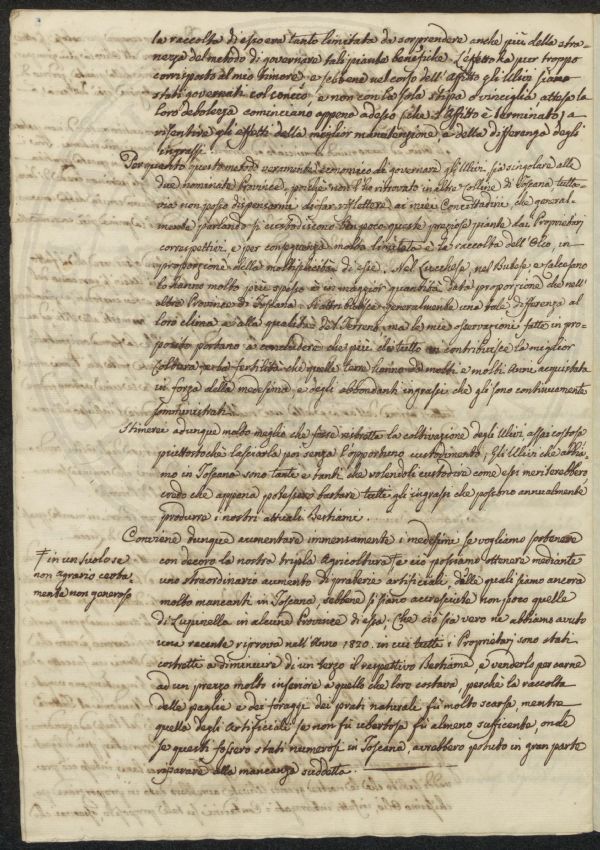 la raccolta di esso era tanto limitata da sorprendere anche più della stra-
nezza del metodo di governare tali piante benefiche. L'effetto ha pur troppo
corrisposto al mio timore e sebbene nel corso dell'Affitto gli Ulivi siano
stati governati col concio e non con la sola stipa o vinciglia, attesa la
loro debolezza cominciano appena adesso (che l'Affitto è terminato) a
risentire gli effetti della miglior manutenzione, e della differenza degli
ingrassi.
Per quanto questo metodo veramente economico di governare gl'Ulivi sia singolare alle
due nominate Province, poichè non l'ho ritrovato in altre Colline di Toscana tutta-
via non posso dispensarmi di far riflettere ai miei Concittadini, che general-
mente parlando si custodiscono ben poco queste preziose piante dai Proprietarj
correspettivi e per conseguenza molto limitata è la raccolta dell'Olio, in
proporzione della moltiplicità di esse. Nel Lucchese, nel Butese e Calcesano
lo hanno molto più spesso e in maggior quantità data proporzione che nell'
altre Province di Toscana. Si attribuisce generalmente una tale differenza al
loro clima e alla qualità del Terreno, ma le mie osservazioni fatte in pro-
posito portano a concludere che più di tutto vi contribuisce la miglior
Coltura per la fertilità che quelle terre hanno da molti e molti Anni acquistata
in forza della medesima e degli abbondanti ingrassi che gli sono continuamente
somministrati.
Stimerei adunque molto meglio che fosse ristretta la coltivazione degli Ulivi assai costosa
piuttostochè lasciarla poi senza l'opportuno custodimento; Gli Ulivi che abbia-
mo in Toscana sono tanti e tanti che volendoli custodire come essi meriterebbero
credo che appena potessero bastare tutti gli ingrassi che possono annualmente
produrre i nostri attuali Bestiami.
Conviene dunque aumentare immensamente i medesimi se vogliamo sostenere
con decoro la nostra tripla Agricoltura † e ciò possiamo ottenere mediante
† in un suolo se
non agrario certa-
mente non generoso
uno straordinario aumento di praterie artificiali, delle quali siamo ancora
molto mancanti in Toscana, sebbene si siano accresciute non poco quelle
di Lupinella in alcune province di essa. Che ciò sia vero ne abbiamo avuto
una recente riprova nell'Anno 1820. in cui tutti i Proprietarj sono stati
costretti a diminuire di un terzo il respettivo Bestiame, e venderlo per carne
ad un prezzo molto inferiore a quello che loro costava, perchè la raccolta
delle paglie e dei foraggi dei prati naturale fù molto scarsa, mentre
quella degli Artificiali se non fù ubertosa fù almeno suficente, onde
se questi fossero stati numerosi in Toscana, avrebbero potuto in gran parte
riparare alla mancanza suddetta.